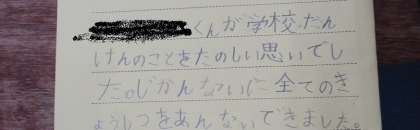 くんが学校たん
けんのことをたのしい思いでし
た。じかんないに全てのき
ょうしつをあんないできました。